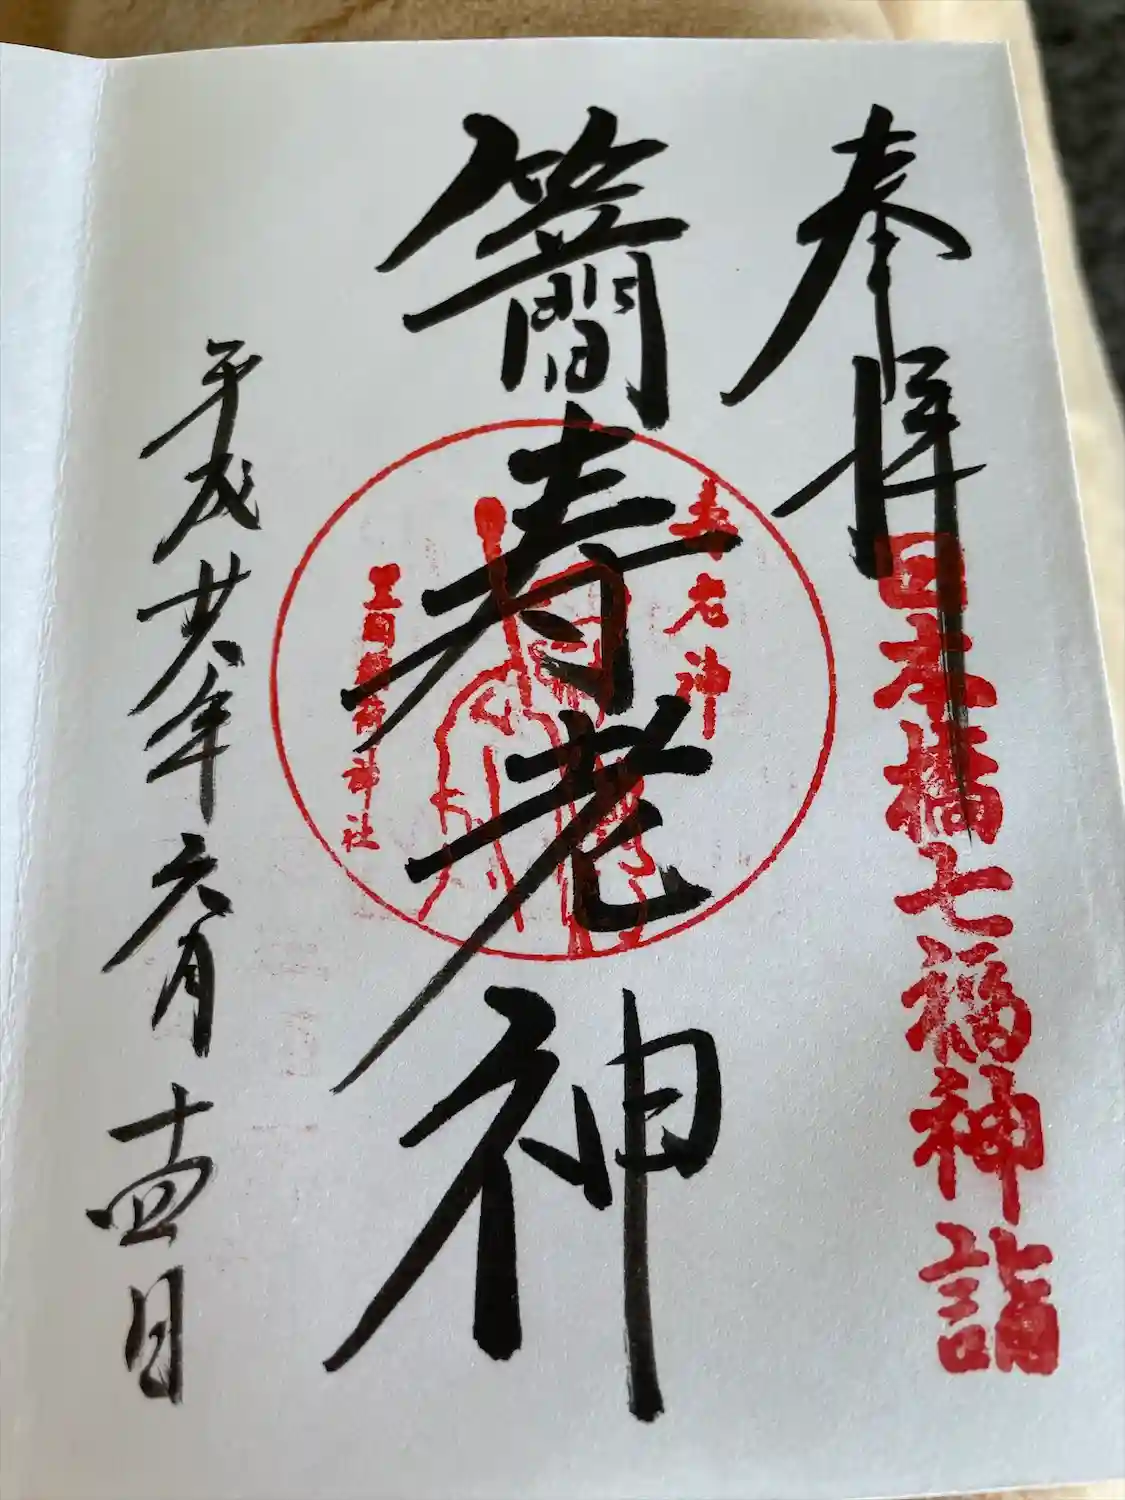 奉拝
日本橋七福神詣
笠間寿老神
寿老神
笠間稲荷神社
平成廿八年六月十四日